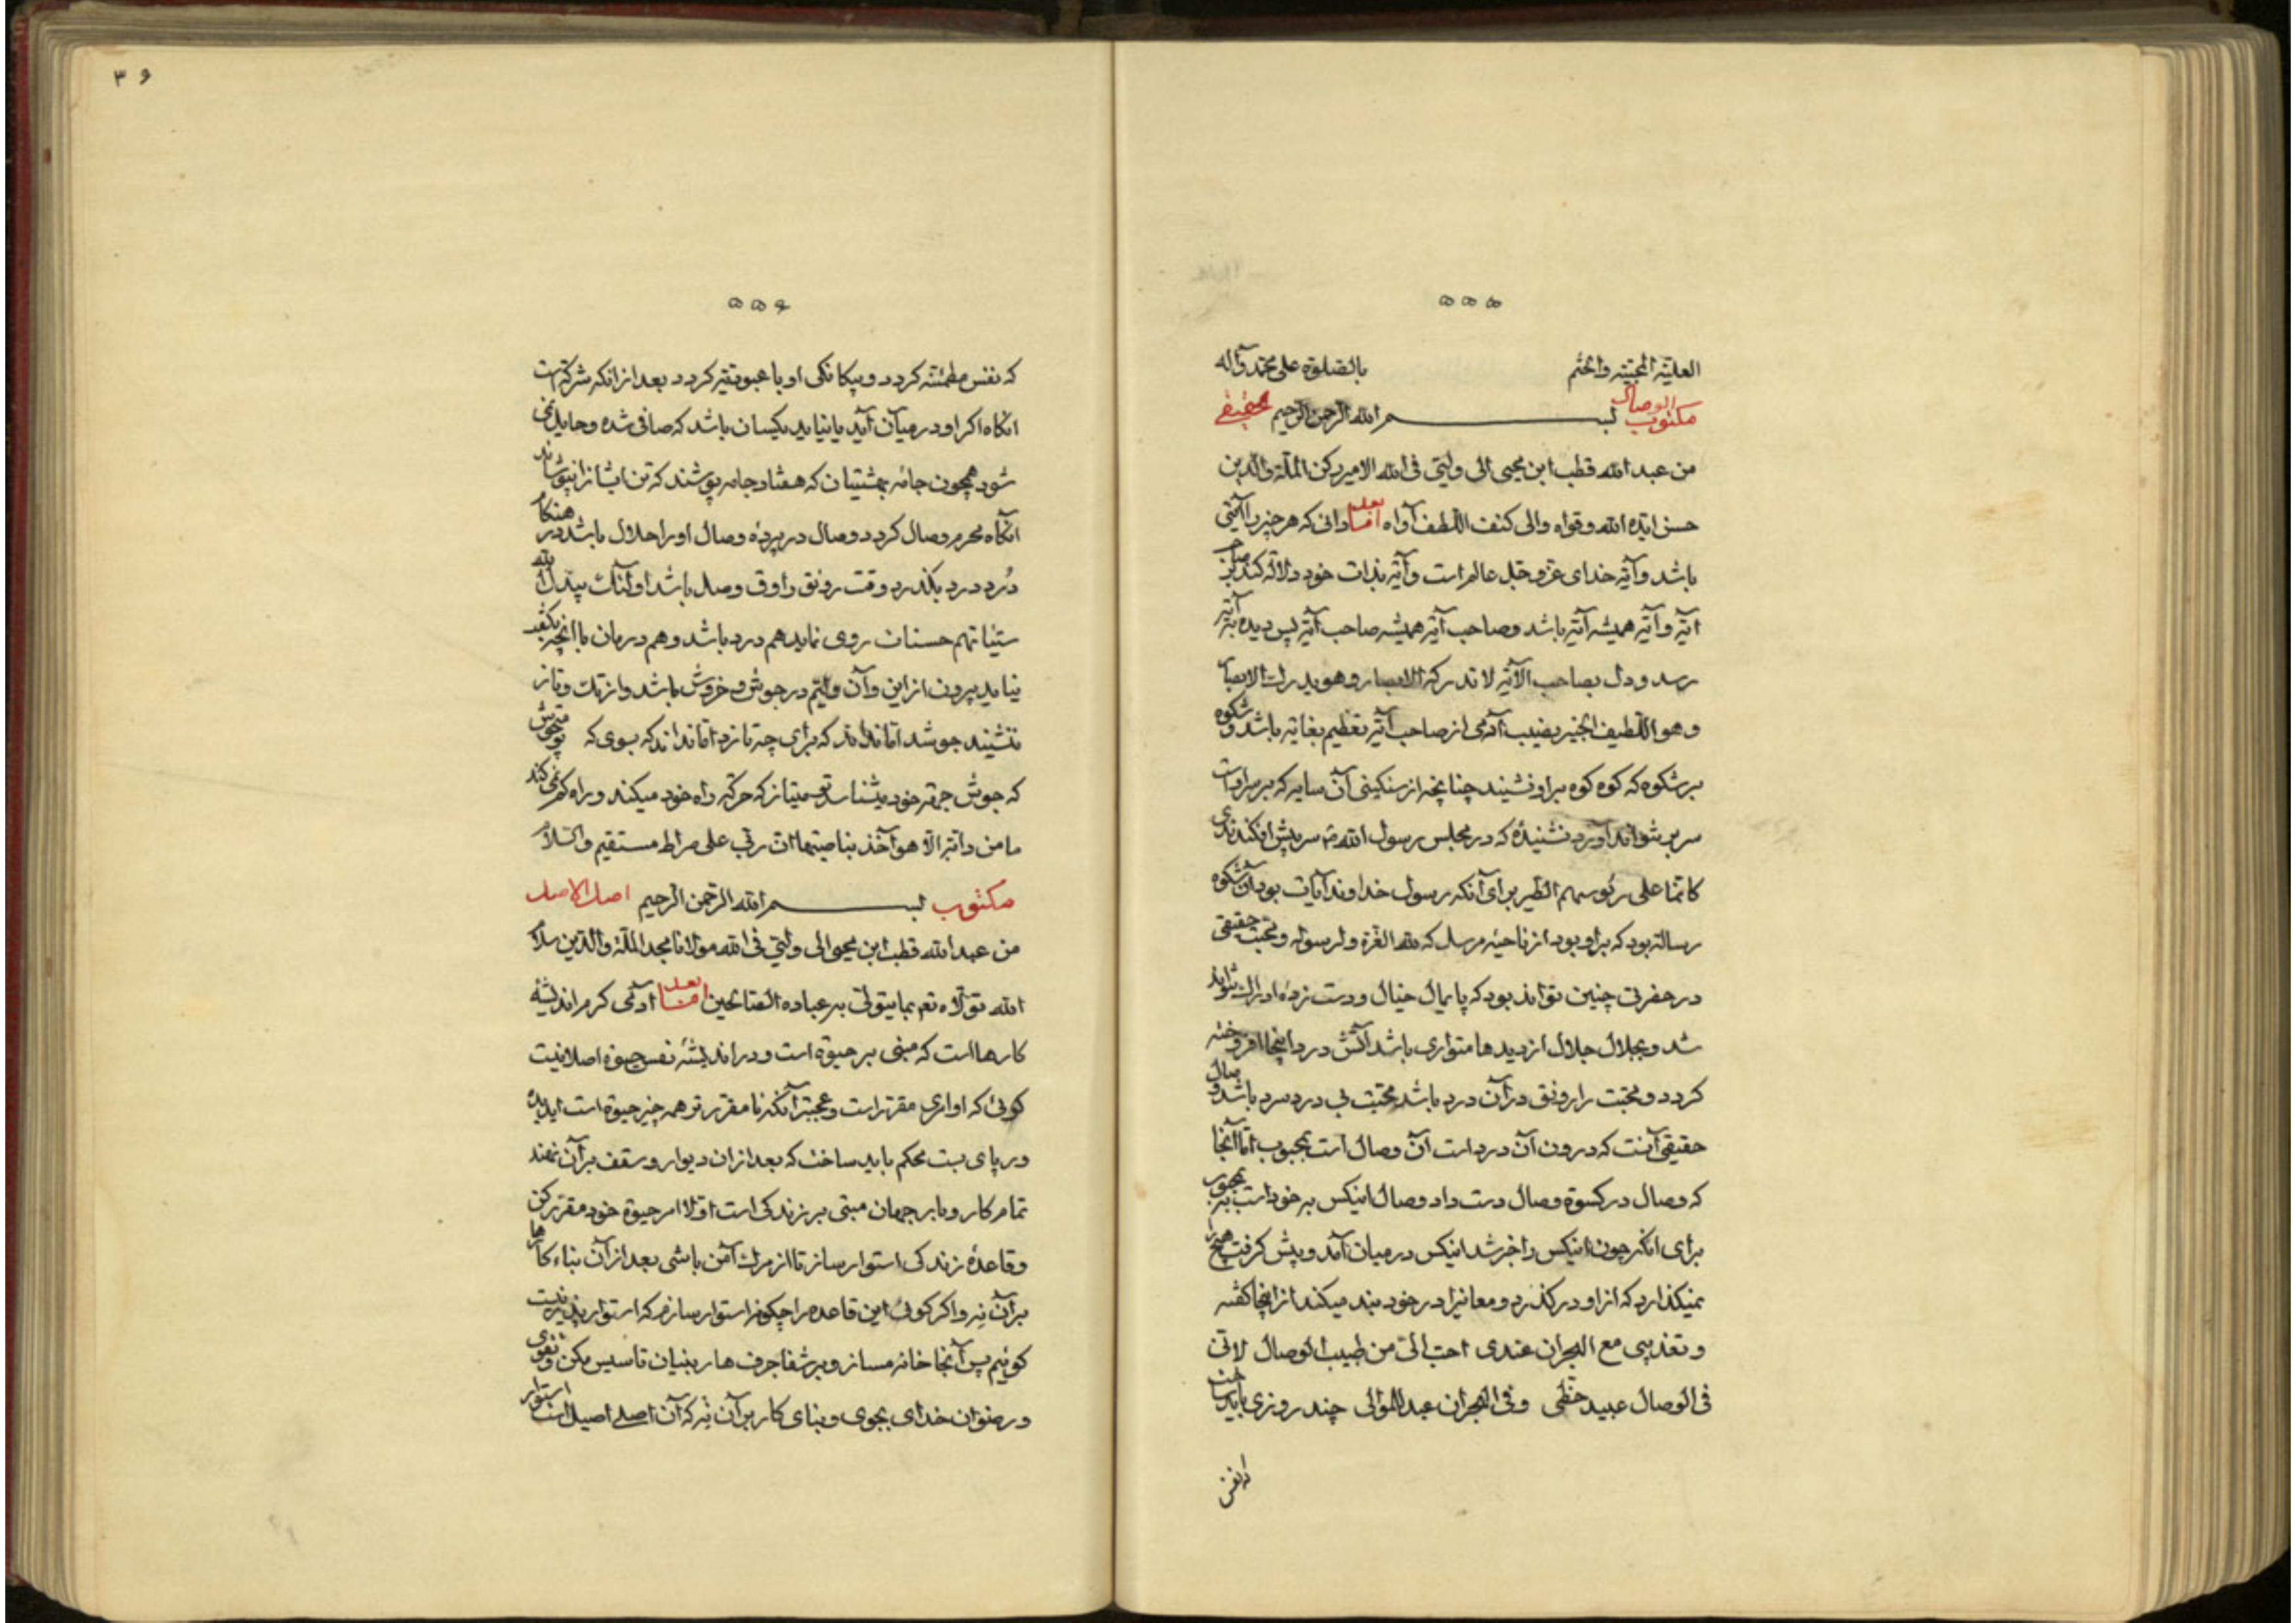 ۵۵۵
العلیّة المجتبیة واختم بالصلوة علی محمد وآله
مکتوب الوصال بسم الله الرحمن الرحیم حقیقی
من عبد الله قطب ابن محیی الی ولیّی فی الله الامیر رکن الملّة والدین
حسن ایّده الله وقواه والی کنف اللطف آواه اما بعد دانی که هر چیز را آیتی
باشد وآیة خدای عزوجل عالم است وآیة بذات خود دلالة کند بر صاحب
آیة وآیة همیشه آیة باشد وصاحب آیة همیشه صاحب آیة پس دیده بآیة
رسد ودل بصاحب الآیة لا تدرکه الابصار وهو یدرك الابصار
وهو اللطیف الخبیر نصیب آدمی از صاحب آیة تعظیم بغایة باشد وشکوه
بر شکوه که کوه کوه بر او نشیند چنانچه از سنکینی آن سایه که بر سر اوست
سر بر نتواند آورد نشنیدهٔ که در مجلس رسول الله سر پیش افکندندی
کانّما علی رؤسهم الطیر برای آنکه رسول خداوند آیات بود وآن شکوه
رسالة بود که بر او بود از ناحیهٔ مرسل که لله العزة ولرسوله ومحبت حقیقی
در حضرتی چنین تواند بود که پایمال خیال ودست زدهٔ ادراك نتواند
شد وبجلال جلال از دیدها متواری باشد آتش درد اینجا افروخته
کردد ومحبت را رونق در آن درد باشد محبت بی درد سرد باشد ووصال
حقیقی آنست که درون آن درد است آن وصال است بمحبوب اما آنجا
که وصال در کسوة وصال دست داد وصال اینکس به خود است نه بمحبوب
برای آنکه چون اینکس را خبر شد اینکس در میان آمد وپیش کرفت هیچ
نمیکذارد که از او درکذرد ومعانیرا در خود بند میکند از اینجا کفته
وتعذیبی مع الهجران عندی احب الیّ من طیب الوصال لانّی
فی الوصال عبید حظّی وفی الهجران عبد للموالی چند روزی باید ساخت
که نفس
۳۶
۵۵۶
که نفس مطمئنه کردد وبیکانکی او با عبودیة کردد بعد از آنکه شرکتست
آنکاه اکر او در میان آید یا نیاید یکسان باشد که صافی شده وحایل نمی
شود همچون جامهٔ بهشتیان که هفتاد جامه پوشند که تن ایشانرا نپوشاند
آنکاه محرم وصال کردد ووصال در پردهٔ وصال او را حلال باشد در هنکام
دُرد درد بکذرد وقت رونق راوق وصل باشد اولئك یبدل الله
سیّئاتهم حسنات روی نماید هم درد باشد وهم درمان با آنچه بکفت
نیاید بیرون از این وآن ودایم در جوش وخروش باشد واز تك وتاز
ننشیند جوشد اما نداند که برای چه تازد اما نداند که بسوی که
که جوش جرقهٔ خود میشناسد حرکة راه خود میکند وراه کم نمی کند
ما من دابة الا هو آخذ بناصیتها ان ربّی علی صراط مستقیم والسلام
مکتوب بسم الله الرحمن الرحیم اصل الاصل
من عبد الله قطب ابن محیی الی ولیّی فی الله مولانا مجد الملّة والدین سلام
الله تولّاه نعم بما یتولّی به عباده الصالحین اما بعد آدمی کرم اندیشهٔ
کارها است که مبنی بر حیوة است ودر اندیشهٔ نفس حیوة اصلا نیست
کوئی که او امری مقرّر است وعجبتر آنکه نا مقرّرتر همه چیز حیوة است
ور پای بست محکم باید ساخت که بعد از آن دیوار وسقف بر آن نهند
تمام کار وبار جهان مبتنی بر زندکی است اولا امر حیوة خود مقرّر کن
وقاعدهٔ زندکی استوار ساز تا از مرك آمن باشی بعد از آن بناء کارها
بر آن نِه واکر کوئی این قاعده را چکونه استوار سازم که استوار پذیر نیست
کوئیم پس آنجا خانه مساز وبر شفا جرف هار بنیان تاسیس مکن وتقوی
ورضوان خدای بجوی وبنای کار بر آن نِه که آن اصلی اصیل است استوار